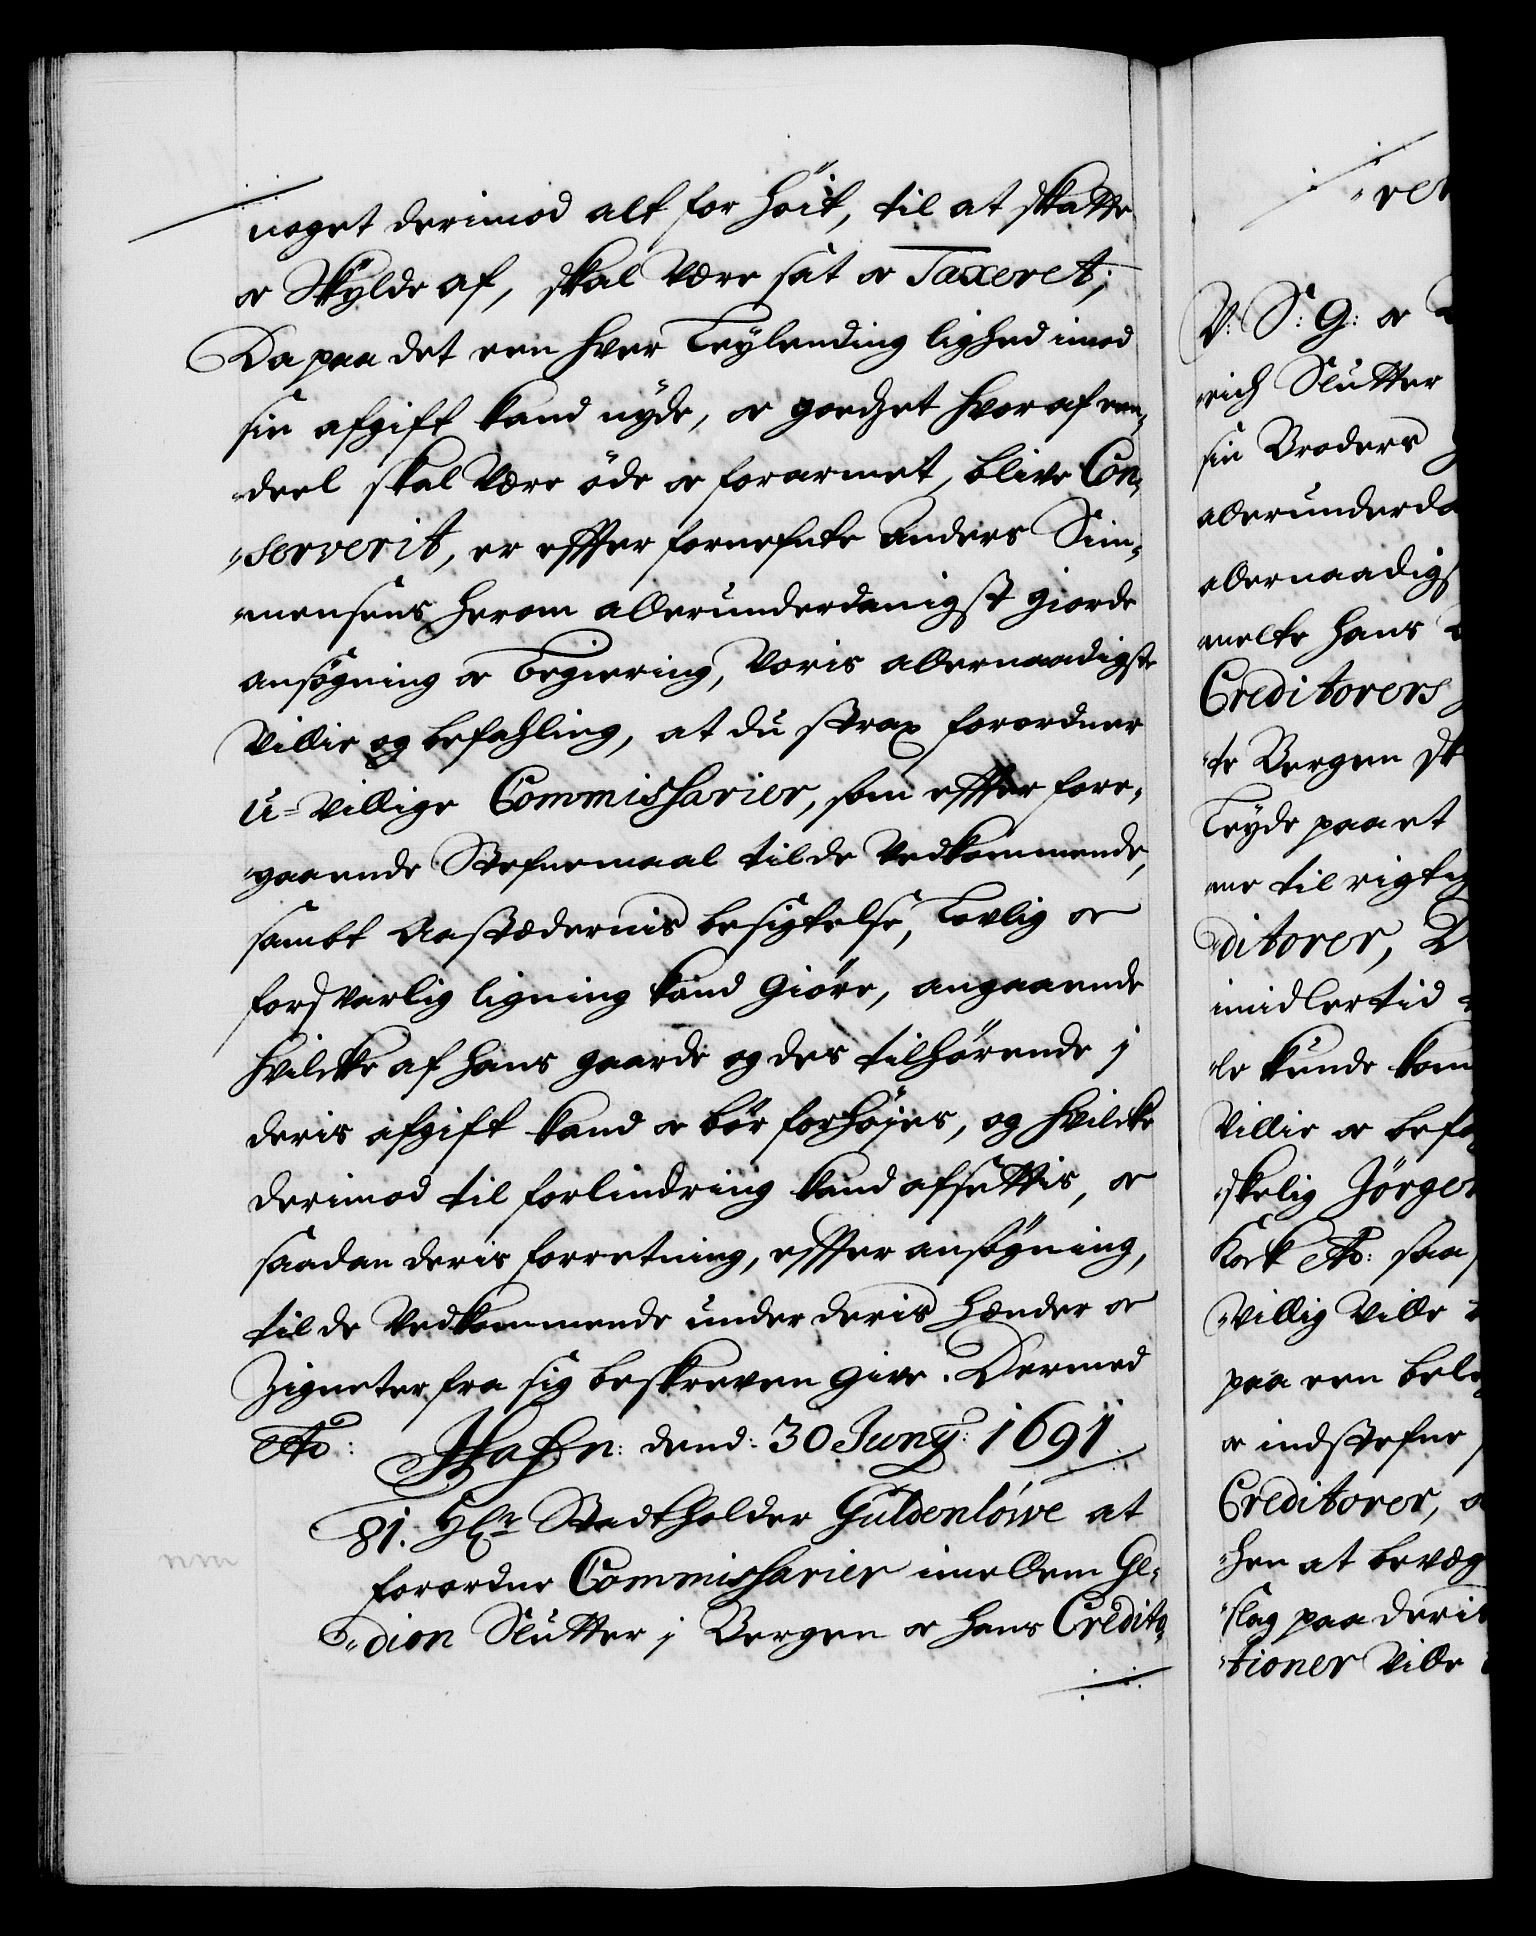 noget derimod alt for höit, til at skatte
oc Skylde af, skal Være sat oc Taxeret;
Da paa det een hver Leylending lighed imod
sin afgift kand nyde, oc goedzet hvoraf een,
deel skal Være öde oc forarmet, blive Con,
serverit, er effter fornefnte Anders Sim,
mensens herom allerunderdanigst giorde
ansögning oc begiering, Voris allernaadigste
Villie og befahling, at du strax forordner
u-villige Commissarier, som effter fore,
gaaende Stefnemaal til de Vedkommende,
sambt Aastædernis besigtelse, Lovlig oc
forsvarlig ligning kand giöre, angaaende
hvilcke af hans gaarde og des tilhörende j
deris afgift kand oc bör forhöjes, og hvilcke
derimod til forlindring kand afsettis, oc
saadan deris forretning, effter ansögning,
til de Vedkommende under deris hænder oc
Zigneter fra sig beskreven give. Dermed
etc: Hafn: dend: 30 Junij: 1691.
81. Hr Stadtholder Guldenlöwe at
forordne Commissarier imellem Ge,
dion Slutter j Bergen oc hans Credito,
rer
V: S: G: oc
rich Slutter
sin Broders
allerunderda
allernaadigs
melte hans
Creditorers
te Bergen sk
Leyde paa et
me til rigtig
ditorer, D
imidlertid
le kunde kom
Villie oc befa
skelig Jörgen
Kock etc: saa
villig Ville
paa een bele
oc indstefne
Creditorer, o
hen at bevæg
slag paa deris
tioner Ville